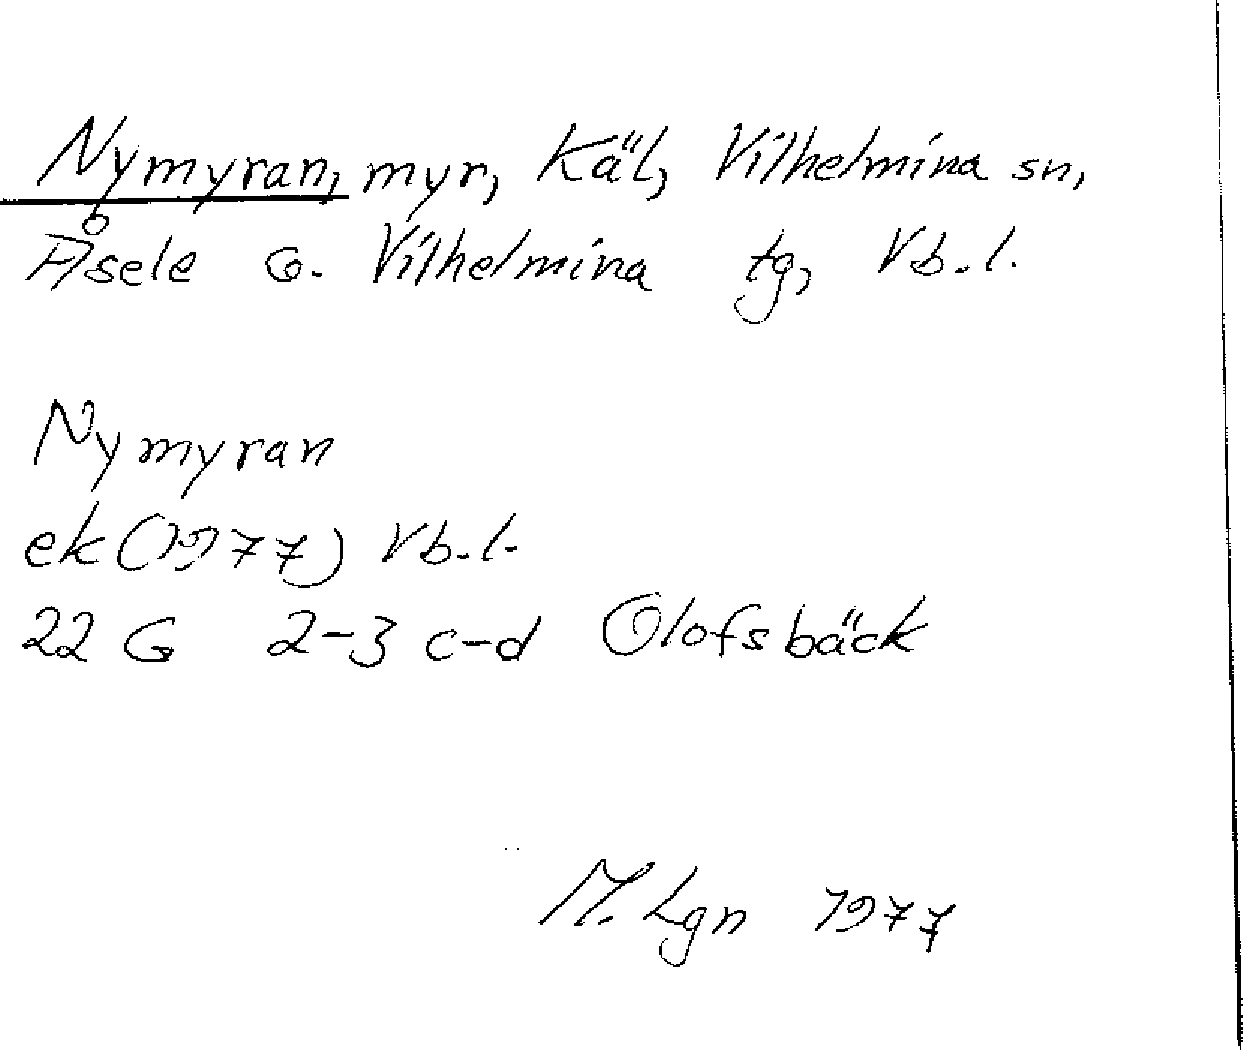 Nymyran, myr, Käl, Vilhelmina sn,
Åsele o. Vilhelmina tg, Vb.l.
Nymyran
ek (1977) Vb.l.
22 G 2-3 c-d Olofsbäck
M. Lgn 1977